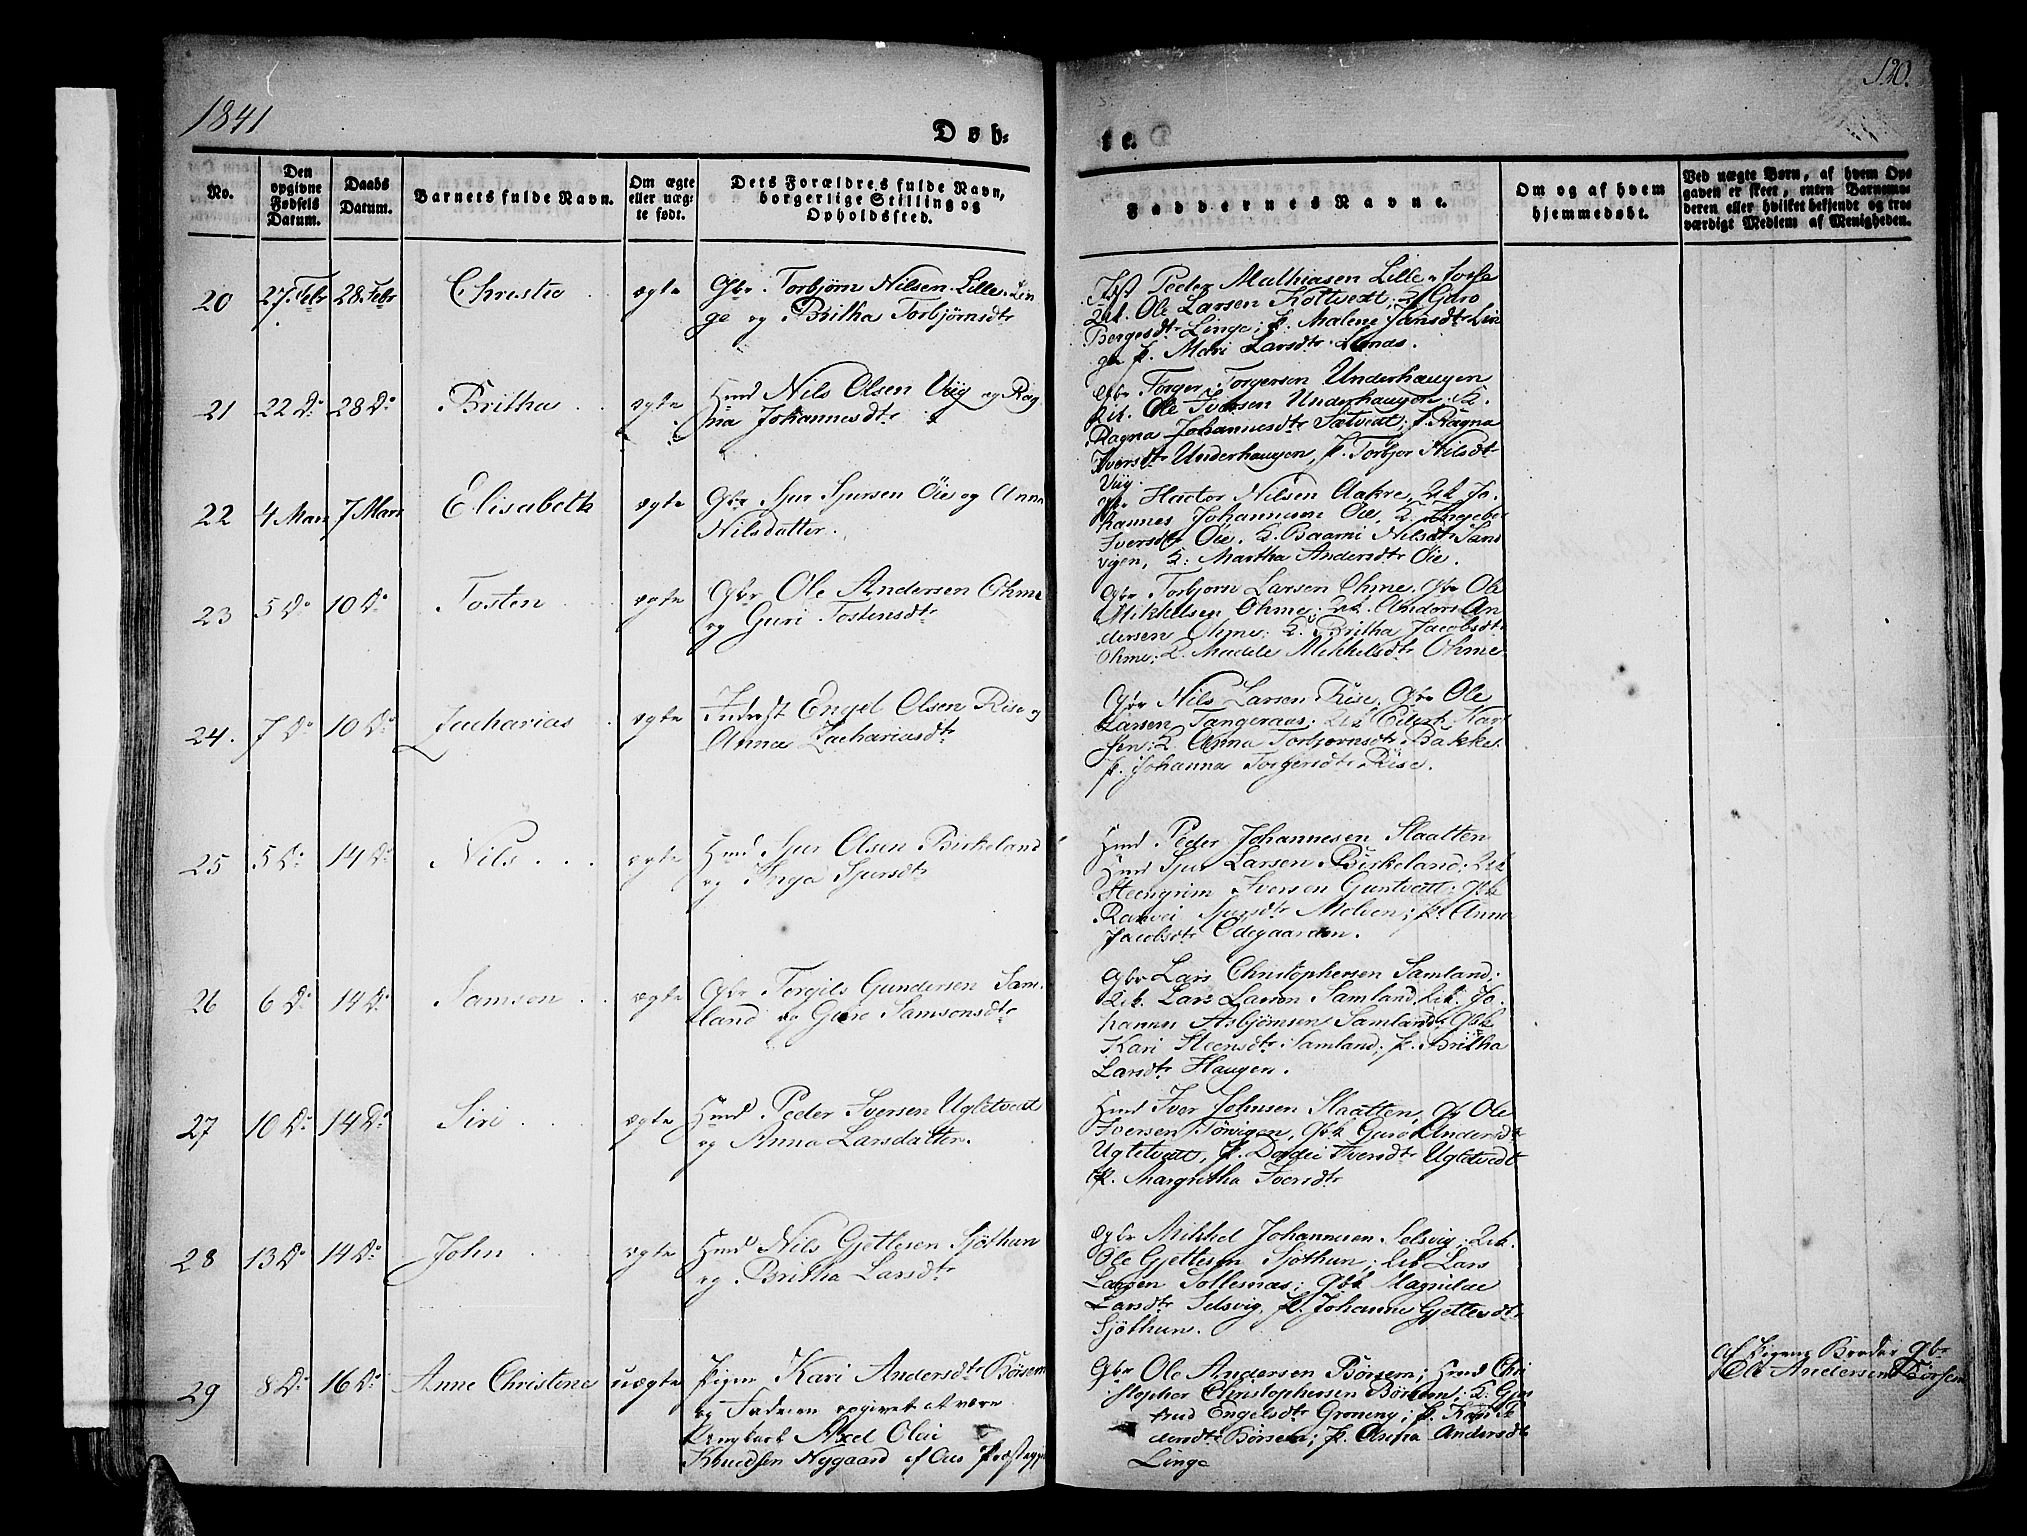 1841
Døb-
te.
120.
No.
Den opgivne Fødsels Datum.
Daabs Datum.
Barnets fulde Navn.
Om ægte eller uægte født.
Dets Forældres fulde Navn, borgerlige Stilling og Opholdssted.
Faddernes Navne.
Om og af hvem hjemmedøbt.
Ved uægte Børn, af hvem Opgaven er skeet, enten Barnemoderen eller hvilket bekjendt og troværdigt Medlem af Menigheden.
20 27. Febr 28. Febr Christie ægte
Gbr. Torbjörn Nilsen Lille Lin
ge og Britha Torbjörnsdtr
Peder Mathiasen Lille
Ole Larsen Koltvedt Guro
Bergesdtr Linge; p. Malene Jansdtr Lin
ge p. Mari Larsdtr
21 22 Do 28 Do Britha ægte
Hmd Nils Olsen Viig og Rag
na Johannesdtr
Gbr Torger Torgersen Underhaugen
Ole Iversen Underhaugen; K.
Ragna Johannesdtr Sætvedt; p. Ragna
Iversdtr Underhaugen, p. Torbjor Nilsdtr
Viig.
22 4 Mars 7 Mars Elisabeth ægte
Gbr Sjur Sjursen Öie og Anna
Nilsdatter.
Gbr Hactor Nilsen Aakre, Uk Jo
hannes Johannesen Öie, K. Ingebor
Iversdtr Öie. K. Baarni Nilsdtr Sand
vigen, K: Martha Andersdtr Öie.
23 5 Do 10 Do Tosten ægte
Gbr Ole Andersen Ohme
og Guri Tostensdtr
Gbr Torbjörn Larsen Ohme. Gbr Ole
Mikkelsen Ohme; Uk Anders An
dersen Ohme; K. Britha Jacobsdtr
Ohme; K. Madele Mikkelsdtr Ohme
24. 7 Do 10 Do Zacharias ægte
Inderst Engel Olsen Rise og
Anna Zachariasdtr
Gbr Nils Larsen Rise; Gbr Ole
Larsen Tangeraas; Uk Eilert Kar
sen; K. Anna Torbjörnsdtr Bakke
p. Johanna Torgersdtr Rise.
25 5 Do 14 Do Nils ægte
Hmd Sjur Olsen Birkeland
og Inga Sjursdtr
Hmd Peder Johannesen Slaatten
Hmd Sjur Larsen Birkeland; Uk
Steengrim Iversen Guntvedt; Gbk
Ranvei Sjursdtr Molven; p. Anna
Jacobsdtr Ödegaarden.
26 6 Do 14 Do Samson ægte
Gbr Torgils Gundersen Sam
land og Guro Samsonsdtr
Gbr Lars Christophersen Samland;
Uk. Lars Larsen Samland, Uk. Jo
hannes Asbjörnsen Samland; Gbk
Kari Steensdtr Samland; p. Britha
Larsdtr Haugen.
27 10 Do 14 Do Siri ægte
Hmd Peder Iversen Ugletvedt
og Anna Larsdatter.
Hmd Iver Johnsen Slaatten, Gbr Ole
Iversen Törvigen, Gbk Guro Andersdtr
Ugletvedt, p. Dordei Iversdtr Ugletvedt
p. Margretha Iversdtr
28 13 Do 14 Do John ægte
Hmd Nils Gjetlesen Sjöthun
og Britha Larsdtr
Gbr Mikkel Johannesen Selsvig; Uk.
Ole Gjetlesen Sjöthun; Uk Lars
Larsen Sollesnæs; Gbk Magnilde
Larsdtr Selsvig, p. Johanna Gjetlesdtr
Sjöthun.
29 8 Do 16 Do Anne Christine uægte
Pigen Kari Andersdtr Börsem
og Faderen opgivet at være
Axel Olai
Knudsen Nygaard af Ous Præstegje
Gbr Ole Andersen Börsem; Hmd Chri
stopher Christophersen Börsem; K. Gjer
trud Engelsdtr Groneng; p. Kari
dersdtr Börsem; p. Anna Andersdtr
Linge
af Pigens Broder Gbr
Ole Andersen Börsem